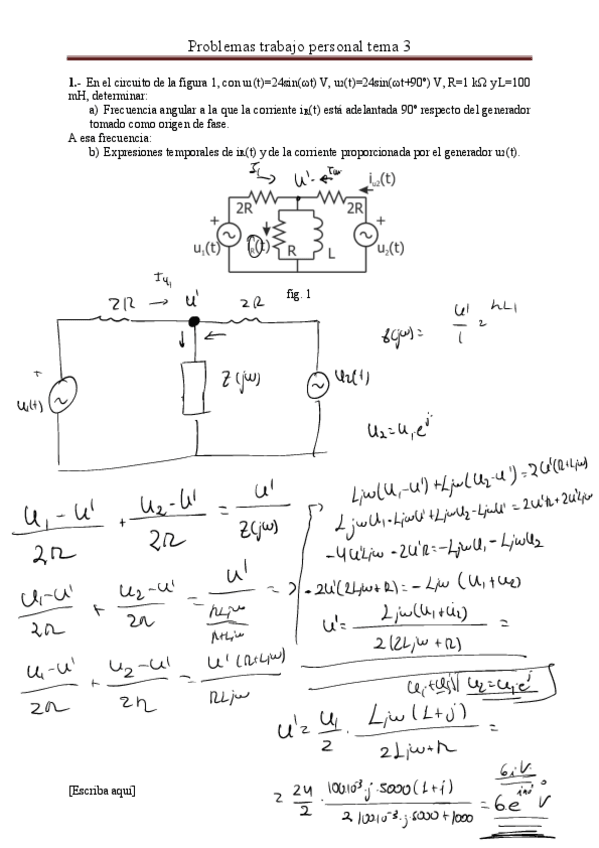 Problemas trabajo personal tema 3
1.- En el circuito de la figura 1, con u₁(t)=24sin(ωt) V, u₂(t)=24sin(ωt+90°) V, R=1 kΩ y L=100
mH, determinar:
a) Frecuencia angular a la que la corriente iR(t) está adelantada 90° respecto del generador
tomado como origen de fase.
A esa frecuencia:
b) Expresiones temporales de iR(t) y de la corriente proporcionada por el generador u₂(t).
u'
2R 2R i_u2(t)
+ +
u₁(t) R L u₂(t)
fig. 1
I_u1
2R → u' 2R
+
u₁(t) Z(jω) u₂(t)
u₂=u₁e^j
(u₁-u')/2R + (u₂-u')/2R = u'/Z(jω)
Ljω(u₁-u')+Ljω(u₂-u')=2u'(R+Ljω)
Ljωu₁-Ljωu'+Ljωu₂-Ljωu'=2u'R+2u'Ljω
-4u'Ljω-2u'R=-Ljωu₁-Ljωu₂
(u₁-u')/2R + (u₂-u')/2R = u'/(RLjω/(R+Ljω)) =>
-2u'(2Ljω+R)=-Ljω(u₁+u₂)
u'= Ljω(u₁+u₂)/2(2Ljω+R) =
(u₁-u')/2R + (u₂-u')/2R = u'(R+Ljω)/RLjω
u₂=u₁e^j
u'= u₁/2 · Ljω(1+j)/(2Ljω+R) =
[Escriba aquí]
= 24/2 · 100·10⁻³·j·5000(1+j)/(2·100·10⁻³·j·5000+1000) = 6e V
6j V